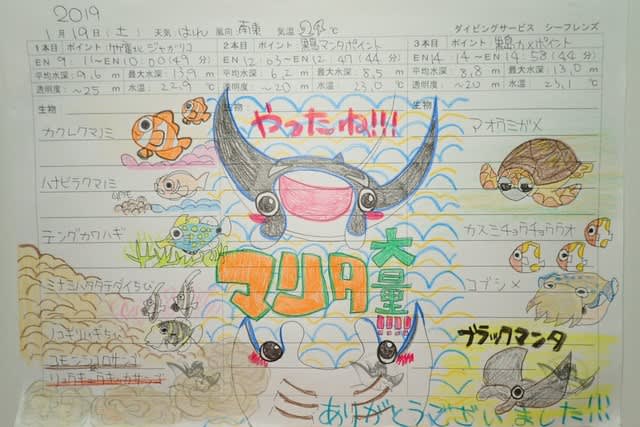 2019
1月19日(土) 天気 はれ 風向 南東 気温 ℃ ダイビングサービス シーフレンズ
1本目 ポイント 竹富北 ジャガリコ 2本目 ポイント 黒島マンタポイント 3本目 ポイント 黒島カメポイント
EN 9:11~EN 10:00(49分) EN 12:03~EN 12:47(44分) EN 14:14~EN 14:58(44分)
平均水深 9.6 m 最大水深 13.9 m 平均水深 6.2 m 最大水深 8.5 m 平均水深 8.8 m 最大水深 13.0 m
透明度 ~25 m 水温 22.9 透明度 ~20 m 水温 23.0 ℃ 透明度 ~20 m 水温 23.1 ℃
生物 生物 生物
カクレクマノミ
ハナビラクマノミ
テングカワハギ
ミナミハタタテダイちび
ノコギリハギちび
コモンシコロサンゴ
リュウキュウキッカサンゴ
やったね!!!
マンタ
大量!!!!
アオウミガメ
カスミチョウチョウウオ
コブシメ
ブラックマンタ
ありがとうございました!!!